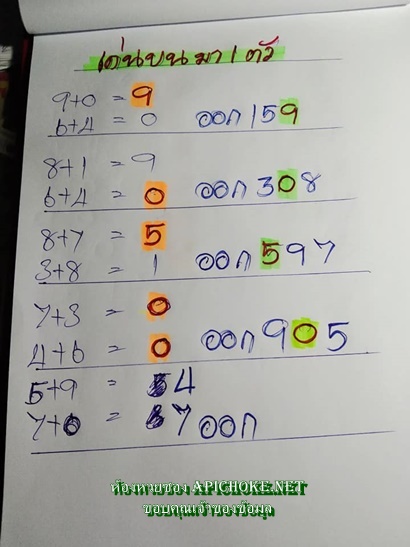 เด่นบนมา 1 ตัว
9+0 = 9
6+4 = 0 ออก 159
8+1 = 9
6+4 = 0 ออก 308
8+7 = 5
3+8 = 1 ออก 597
7+3 = 0
4+6 = 0 ออก 905
5+9 = 4
7+0 = 7 ออก
ห้องหวยของ APICHOKE.NET
ขอบคุณเจ้าของข้อมูล